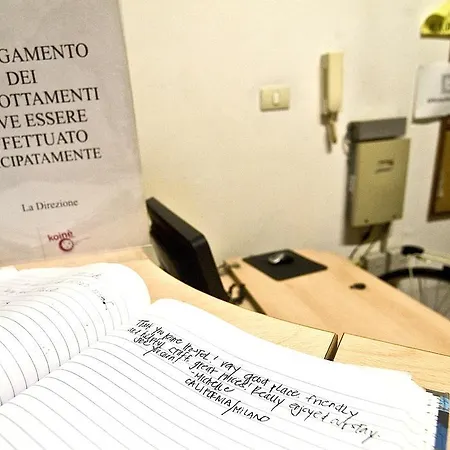 GAMENTO
DEI
OTTAMENTI
VE ESSERE
FETTUATO
CIPATAMENTE
La Direzione
koinè
Thank you Koine Hostel! Very good place, friendly
and helpful staff, great prices! Really enjoyed our stay.
again!
-Michelle
CALIFORNIA/MILANO